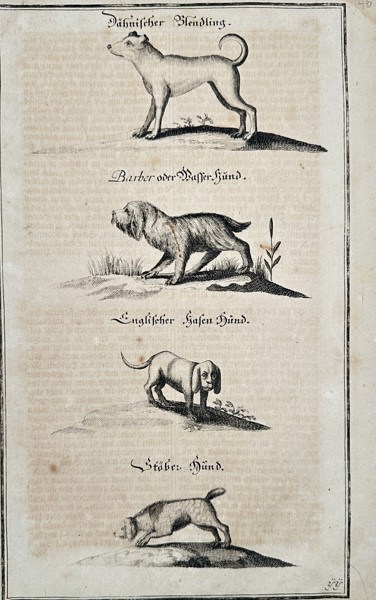 Dähnischer Blendling.
Barbet oder Wasser Hund.
Englischer Hasen Hund.
Stöber Hund.